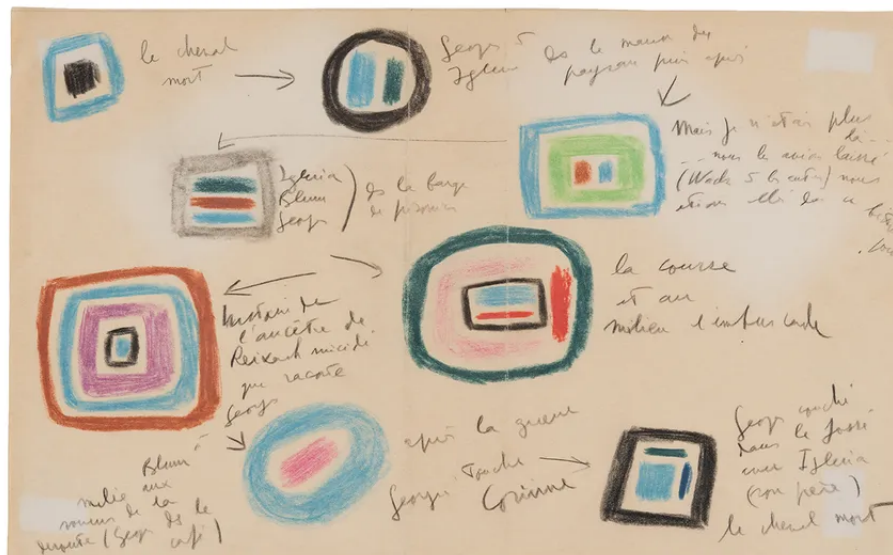 le cheval
mort
Georges
Iglésia ds la maison du
paysan puis après
Mais je n'étais plus
là...
... nous
(Wack 5 ) nous
étions
Iglésia
Blum
Georges
ds la
de
la course
et au
milieu l'embuscade
histoire de
l'ancêtre de
Reixach suicidé
que raconte
Georges
à
Blum
mêlée aux
de la
déroute (Georges ds le
café)
après la guerre
Georges touche
Corinne
Georges couché
dans le fossé
avec Iglésia
(son père)
le cheval mort